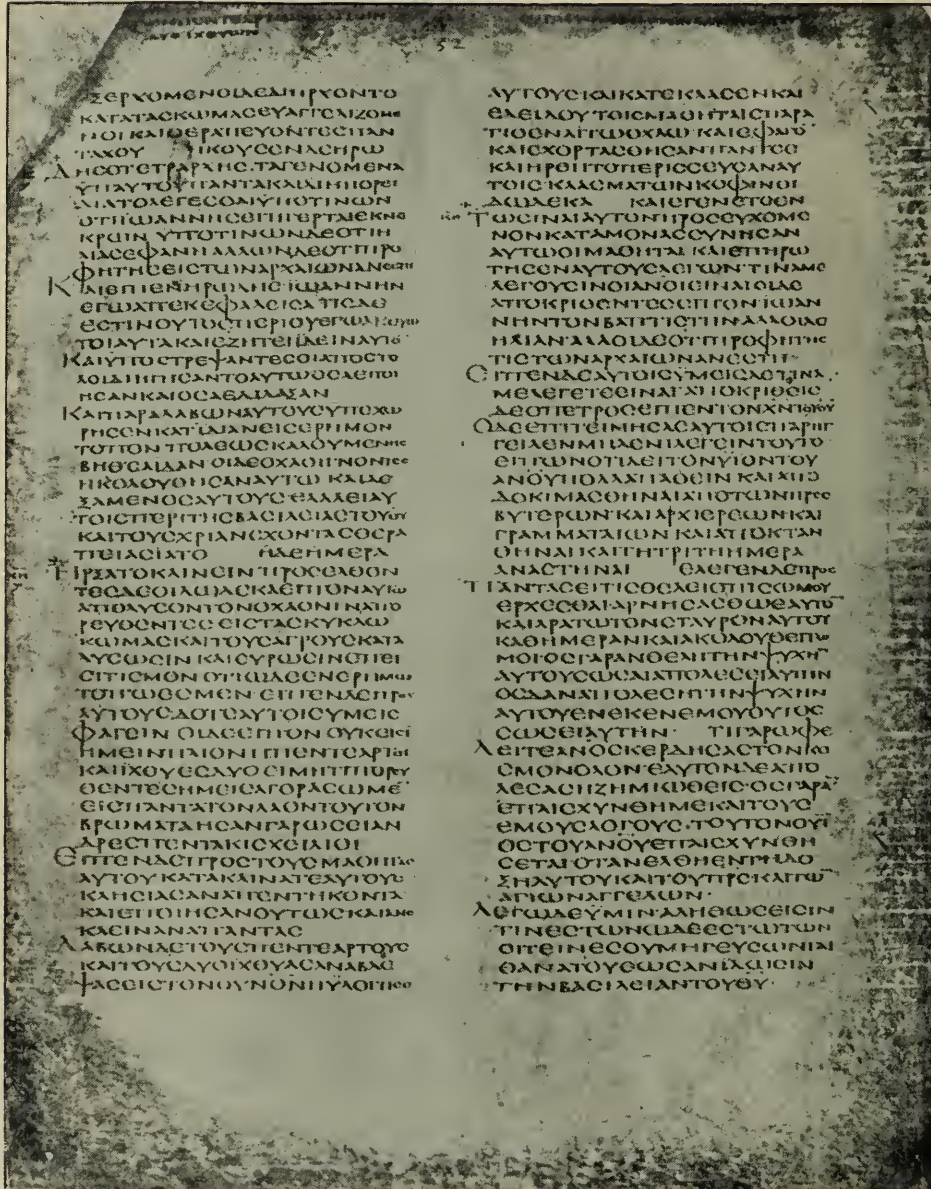 52
ΞΕΡΧΟΜΕΝΟΙΔΕΔΙΗΡΧΟΝΤΟ
ΚΑΤΑΤΑϹΚΩΜΑϹΕΥΑΓΓΕΛΙΖΟΜΕ
ΝΟΙΚΑΙΘΕΡΑΠΕΥΟΝΤΕϹΠΑΝ
ΤΑΧΟΥ ΗΚΟΥϹΕΝΔΕΗΡΩ
ΔΗϹΟΤΕΤΡΑΡΧΗϹ·ΤΑΓΕΝΟΜΕΝΑ
ΫΠΑΥΤΟΥΠΑΝΤΑΚΑΙΔΙΗΠΟΡΕΙ
ΔΙΑΤΟΛΕΓΕϹΘΑΙΫΠΟΤΙΝΩΝ
ΟΤΙΪΩΑΝΝΗϹΕΓΗΓΕΡΤΑΙΕΚΝΕ
ΚΡΩΝ ΥΠΟΤΙΝΩΝΔΕΟΤΙΗ
ΛΙΑϹΕΦΑΝΗΑΛΛΩΝΔΕΟΤΙΠΡΟ
ΦΗΤΗϹΕΙϹΤΩΝΑΡΧΑΙΩΝΑΝΕϹΤΗ
ΚΑΙΕΙΠΕΝΗΡΩΔΗϹΪΩΑΝΝΗΝ
ΕΓΩΑΠΕΚΕΦΑΛΕΙϹΑΤΙϹΔΕ
ΕϹΤΙΝΟΥΤΟϹΠΕΡΙΟΥΕΓΩΑΚΟΥΩ
ΤΟΙΑΥΤΑΚΑΙΕΖΗΤΕΙΪΔΕΙΝΑΥΤΟ
ΚΑΙΥΠΟϹΤΡΕΨΑΝΤΕϹΟΙΑΠΟϹΤΟ
ΛΟΙΔΙΗΓΗϹΑΝΤΟΑΥΤΩΟϹΑΕΠΟΙ
ΗϹΑΝΚΑΙΟϹΑΕΔΙΔΑΞΑΝ
ΚΑΙΠΑΡΑΛΑΒΩΝΑΥΤΟΥϹΥΠΕΧΩ
ΡΗϹΕΝΚΑΤΪΔΙΑΝΕΙϹΕΡΗΜΟΝ
ΤΟΠΟΝ ΠΟΛΕΩϹΚΑΛΟΥΜΕΝΗϹ
ΒΗΘϹΑΙΔΑΝ ΟΙΔΕΟΧΛΟΙΓΝΟΝΤΕϹ
ΗΚΟΛΟΥΘΗϹΑΝΑΥΤΩ ΚΑΙΔΕ
ΞΑΜΕΝΟϹΑΥΤΟΥϹΕΛΑΛΕΙΑΥ
ΤΟΙϹΠΕΡΙΤΗϹΒΑϹΙΛΕΙΑϹΤΟΥΘΥ
ΚΑΙΤΟΥϹΧΡΙΑΝΕΧΟΝΤΑϹΘΕΡΑ
ΠΕΙΑϹΙΑΤΟ ΗΔΕΗΜΕΡΑ
ΗΡΞΑΤΟΚΛΙΝΕΙΝ ΠΡΟϹΕΛΘΟΝ
ΤΕϹΔΕΟΙΔΩΔΕΚΑΕΙΠΟΝΑΥΤΩ
ΑΠΟΛΥϹΟΝΤΟΝΟΧΛΟΝΙΝΑΠΟ
ΡΕΥΘΕΝΤΕϹ ΕΙϹΤΑϹΚΥΚΛΩ
ΚΩΜΑϹΚΑΙΤΟΥϹΑΓΡΟΥϹΚΑΤΑ
ΛΥϹΩϹΙΝ ΚΑΙΕΥΡΩϹΙΝΕΠΕΙ
ϹΙΤΙϹΜΟΝ ΟΤΙΩΔΕΕΝΕΡΗΜΩ
ΤΟΠΩΕϹΜΕΝ ΕΙΠΕΝΔΕΠΡΟϹ
ΑΥΤΟΥϹΔΟΤΕΑΥΤΟΙϹΥΜΕΙϹ
ΦΑΓΕΙΝ ΟΙΔΕΕΙΠΟΝ ΟΥΚΕΙϹΙ
ΗΜΕΙΝΠΛΙΟΝΗΠΕΝΤΕΑΡΤΟΙ
ΚΑΙΙΧΘΥΕϹΔΥΟ ΕΙΜΗΤΙΠΟΡΕΥ
ΘΕΝΤΕϹΗΜΕΙϹΑΓΟΡΑϹΩΜΕ
ΕΙϹΠΑΝΤΑΤΟΝΛΑΟΝΤΟΥΤΟΝ
ΒΡΩΜΑΤΑΗϹΑΝΓΑΡΩϹΕΙΑΝ
ΔΡΕϹΠΕΝΤΑΚΙϹΧΕΙΛΙΟΙ
ΕΙΠΕΝΔΕΠΡΟϹΤΟΥϹΜΑΘΗΤΑϹ
ΑΥΤΟΥ ΚΑΤΑΚΛΙΝΑΤΕΑΥΤΟΥϹ
ΚΛΗϹΙΑϹΑΝΑΠΕΝΤΗΚΟΝΤΑ
ΚΑΙΕΠΟΙΗϹΑΝΟΥΤΩϹΚΑΙΑΝΕ
ΚΛΙΝΑΝΑΠΑΝΤΑϹ
ΛΑΒΩΝΔΕΤΟΥϹΠΕΝΤΕΑΡΤΟΥϹ
ΚΑΙΤΟΥϹΔΥΟΙΧΘΥΑϹΑΝΑΒΛΕ
ΨΑϹΕΙϹΤΟΝΟΥΝΟΝΗΥΛΟΓΗϹΕ
ΑΥΤΟΥϹΚΑΙΚΑΤΕΚΛΑϹΕΝΚΑΙ
ΕΔΕΙΔΟΥΤΟΙϹΜΑΘΗΤΑΙϹΠΑΡΑ
ΤΙΘΕΝΑΙΤΩΟΧΛΩ ΚΑΙΕΦΑΓΟ
ΚΑΙΕΧΟΡΤΑϹΘΗϹΑΝΠΑΝΤΕϹ
ΚΑΙΗΡΘΗΤΟΠΕΡΙϹϹΕΥϹΑΝΑΥ
ΤΟΙϹΚΛΑϹΜΑΤΩΝΚΟΦΙΝΟΙ
ΔΩΔΕΚΑ ΚΑΙΕΓΕΝΕΤΟΕΝ
ΤΩΕΙΝΑΙΑΥΤΟΝΠΡΟϹΕΥΧΟΜΕ
ΝΟΝΚΑΤΑΜΟΝΑϹϹΥΝΗϹΑΝ
ΑΥΤΩΟΙΜΑΘΗΤΑΙ ΚΑΙΕΠΗΡΩ
ΤΗϹΕΝΑΥΤΟΥϹΛΕΓΩΝΤΙΝΑΜΕ
ΛΕΓΟΥϹΙΝΟΙΑΝΟΙΕΙΝΑΙΟΙΔΕ
ΑΠΟΚΡΙΘΕΝΤΕϹΕΙΠΟΝΙΩΑΝ
ΝΗΝΤΟΝΒΑΠΤΙϹΤΗΝΑΛΛΟΙΔΕ
ΗΛΙΑΝ ΑΛΛΟΙΔΕΟΤΙΠΡΟΦΗΤΗϹ
ΤΙϹΤΩΝΑΡΧΑΙΩΝΑΝΕϹΤΗ
ΕΙΠΕΝΔΕΑΥΤΟΙϹΥΜΕΙϹΔΕΤΙΝΑ
ΜΕΛΕΓΕΤΕΕΙΝΑΙΑΠΟΚΡΙΘΕΙϹ
ΔΕΟΠΕΤΡΟϹΕΙΠΕΝΤΟΝΧΝΤΟΥΘΥ
ΟΔΕΕΠΙΤΕΙΜΗϹΑϹΑΥΤΟΙϹΠΑΡΗΓ
ΓΕΙΛΕΝΜΗΔΕΝΙΛΕΓΕΙΝΤΟΥΤΟ
ΕΙΠΩΝΟΤΙΔΕΙΤΟΝΥΙΟΝΤΟΥ
ΑΝΟΥΠΟΛΛΑΠΑΘΕΙΝ ΚΑΙΑΠΟ
ΔΟΚΙΜΑϹΘΗΝΑΙΑΠΟΤΩΝΠΡΕϹ
ΒΥΤΕΡΩΝ ΚΑΙΑΡΧΙΕΡΕΩΝΚΑΙ
ΓΡΑΜΜΑΤΑΙΩΝ ΚΑΙΑΠΟΚΤΑΝ
ΘΗΝΑΙΚΑΙΤΗΤΡΙΤΗΗΜΕΡΑ
ΑΝΑϹΤΗΝΑΙ ΕΛΕΓΕΝΔΕΠΡΟϹ
ΠΑΝΤΑϹΕΙΤΙϹΘΕΛΕΙΟΠΙϹΩΜΟΥ
ΕΡΧΕϹΘΑΙΑΡΝΗϹΑϹΘΩΕΑΥΤΟ
ΚΑΙΑΡΑΤΩΤΟΝϹΤΑΥΡΟΝΑΥΤΟΥ
ΚΑΘΗΜΕΡΑΝΚΑΙΑΚΟΛΟΥΘΕΙΤΩ
ΜΟΙ·ΟϹΓΑΡΑΝΘΕΛΗΤΗΝΨΥΧΗ
ΑΥΤΟΥϹΩϹΑΙΑΠΟΛΕϹΕΙΑΥΤΗΝ
ΟϹΔΑΝΑΠΟΛΕϹΗΤΗΝΨΥΧΗΝ
ΑΥΤΟΥΕΝΕΚΕΝΕΜΟΥΟΥΤΟϹ
ϹΩϹΕΙΑΥΤΗΝ· ΤΙΓΑΡΩΦΕ
ΛΕΙΤΕΑΝΟϹΚΕΡΔΗϹΑϹΤΟΝΚΟ
ϹΜΟΝΟΛΟΝ·ΕΑΥΤΟΝΔΕΑΠΟ
ΛΕϹΑϹΗΖΗΜΙΩΘΕΙϹ·ΟϹΓΑΡΑ
ΕΠΑΙϹΧΥΝΘΗΜΕΚΑΙΤΟΥϹ
ΕΜΟΥϹΛΟΓΟΥϹ·ΤΟΥΤΟΝΟΥΙ
ΟϹΤΟΥΑΝΟΥΕΠΑΙϹΧΥΝΘΗ
ϹΕΤΑΙΟΤΑΝΕΛΘΗΕΝΤΗΔΟ
ΞΗΑΥΤΟΥΚΑΙΤΟΥΠΡϹΚΑΙΤΩ
ΑΓΙΩΝΑΓΓΕΛΩΝ·
ΛΕΓΩΔΕΫΜΙΝ·ΑΛΗΘΩϹΕΙϹΙΝ
ΤΙΝΕϹΤΩΝΩΔΕΕϹΤΩΤΩΝ
ΟΙΤΕΙΝΕϹΟΥΜΗΓΕΥϹΩΝΤΑΙ
ΘΑΝΑΤΟΥΕΩϹΑΝΪΔΩϹΙΝ
ΤΗΝΒΑϹΙΛΕΙΑΝΤΟΥΘΥ·